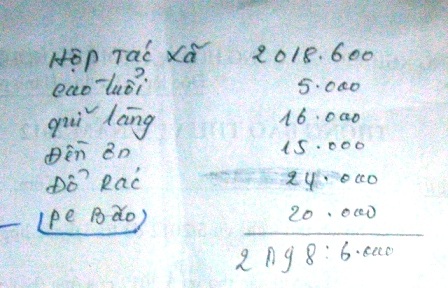 Hợp Tác Xã 2018.600
cao tuổi 5.000
quĩ làng 16.000
Đền ơn 15.000
Đổ Rác 24.000
pc Bão 20.000